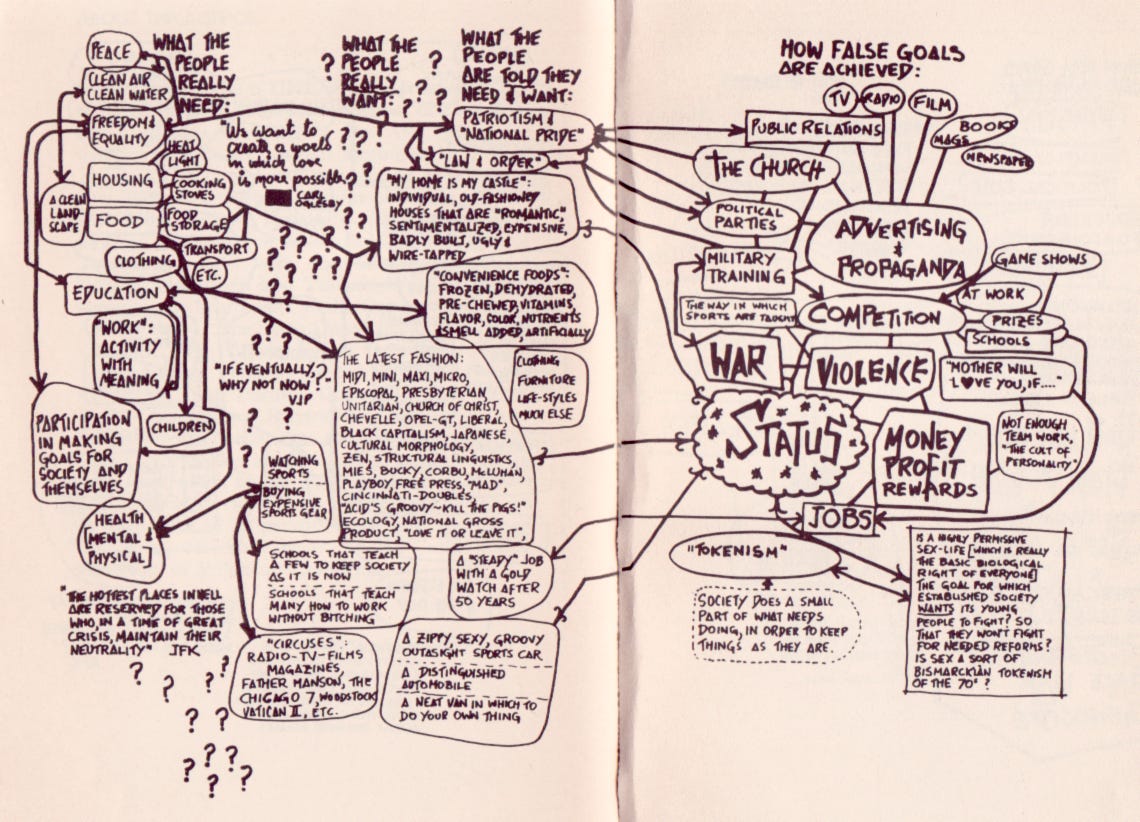 WHAT THE
PEOPLE
REALLY
NEED:
PEACE
CLEAN AIR
CLEAN WATER
FREEDOM &
EQUALITY
HEAT
LIGHT
HOUSING
COOKING
STOVES
A CLEAN
LAND-
SCAPE
FOOD
FOOD
STORAGE
TRANSPORT
CLOTHING
ETC.
EDUCATION
"WORK":
ACTIVITY
WITH
MEANING
CHILDREN
PARTICIPATION
IN MAKING
GOALS FOR
SOCIETY AND
THEMSELVES
HEALTH
[MENTAL &
PHYSICAL]
"THE HOTTEST PLACES IN HELL
ARE RESERVED FOR THOSE
WHO, IN A TIME OF GREAT
CRISIS, MAINTAIN THEIR
NEUTRALITY" JFK
WHAT THE
PEOPLE
REALLY
WANT:
"We want to
create a world
in which love
is more possible"
CARL
OGLESBY
"IF EVENTUALLY,
WHY NOT NOW?"
VIP
? ? ? ? ? ? ? ? ? ?
WHAT THE
PEOPLE
ARE TOLD THEY
NEED & WANT:
PATRIOTISM &
"NATIONAL PRIDE"
"LAW & ORDER"
"MY HOME IS MY CASTLE":
INDIVIDUAL, OLD-FASHIONED
HOUSES THAT ARE "ROMANTIC",
SENTIMENTALIZED, EXPENSIVE,
BADLY BUILT, UGLY &
WIRE-TAPPED
"CONVENIENCE FOODS":
FROZEN, DEHYDRATED,
PRE-CHEWED, VITAMINS,
FLAVOR, COLOR, NUTRIENTS
& SMELL ADDED, ARTIFICIALLY
THE LATEST FASHION:
MIDI, MINI, MAXI, MICRO,
EPISCOPAL, PRESBYTERIAN,
UNITARIAN, CHURCH OF CHRIST,
CHEVELLE, OPEL-GT, LIBERAL,
BLACK CAPITALISM, JAPANESE,
CULTURAL MORPHOLOGY,
ZEN, STRUCTURAL LINGUISTICS,
MIES, BUCKY, CORBU, McLUHAN,
PLAYBOY, FREE PRESS, "MAD",
CINCINNATI-DOUBLES,
"ACID'S GROOVY-KILL THE PIGS!"
ECOLOGY, NATIONAL GROSS
PRODUCT, "LOVE IT OR LEAVE IT",
CLOTHING
FURNITURE
LIFE-STYLES
MUCH ELSE
WATCHING
SPORTS
BUYING
EXPENSIVE
SPORTS GEAR
SCHOOLS THAT TEACH
A FEW TO KEEP SOCIETY
AS IT IS NOW
SCHOOLS THAT TEACH
MANY HOW TO WORK
WITHOUT BITCHING
A "STEADY" JOB
WITH A GOLD
WATCH AFTER
50 YEARS
"CIRCUSES":
RADIO-TV-FILMS
MAGAZINES,
FATHER MANSON, THE
CHICAGO 7, WOODSTOCK
VATICAN II, ETC.
A ZIPPY, SEXY, GROOVY
OUTASIGHT SPORTS CAR
A DISTINGUISHED
AUTOMOBILE
A NEAT VAN IN WHICH TO
DO YOUR OWN THING
HOW FALSE GOALS
ARE ACHIEVED:
TV
RADIO
FILM
BOOKS
MAGS
NEWSPAPER
PUBLIC RELATIONS
THE CHURCH
POLITICAL
PARTIES
ADVERTISING
&
PROPAGANDA
MILITARY
TRAINING
GAME SHOWS
AT WORK
THE WAY IN WHICH
SPORTS ARE TAUGHT
COMPETITION
PRIZES
SCHOOLS
WAR
VIOLENCE
"MOTHER WILL
L♥VE YOU, IF...."
STATUS
MONEY
PROFIT
REWARDS
NOT ENOUGH
TEAM WORK,
"THE CULT OF
PERSONALITY"
JOBS
"TOKENISM"
SOCIETY DOES A SMALL
PART OF WHAT NEEDS
DOING, IN ORDER TO KEEP
THINGS AS THEY ARE.
IS A HIGHLY PERMISSIVE
SEX-LIFE [WHICH IS REALLY
THE BASIC BIOLOGICAL
RIGHT OF EVERYONE]
THE GOAL FOR WHICH
ESTABLISHED SOCIETY
WANTS ITS YOUNG
PEOPLE TO FIGHT? SO
THAT THEY WON'T FIGHT
FOR NEEDED REFORMS?
IS SEX A SORT OF
BISMARCKIAN TOKENISM
OF THE 70s?